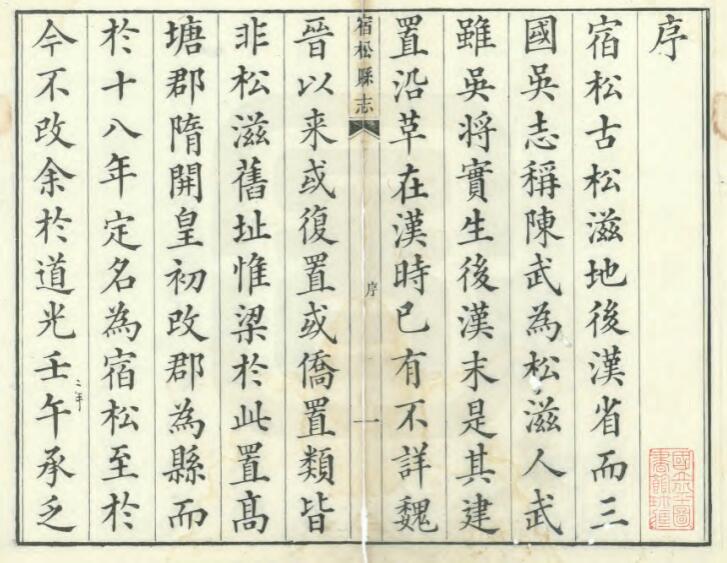 序
宿松古松滋地後漢省而三
國吳志稱陳武為松滋人武
雖吳将實生後漢末是其建
置沿革在漢時已有不詳魏
宿松縣志
序
一
晉以来或復置或僑置類皆
非松滋舊址惟梁於此置髙
塘郡隋開皇初改郡為縣而
於十八年定名為宿松至於
今不改余於道光壬午承乏
二年